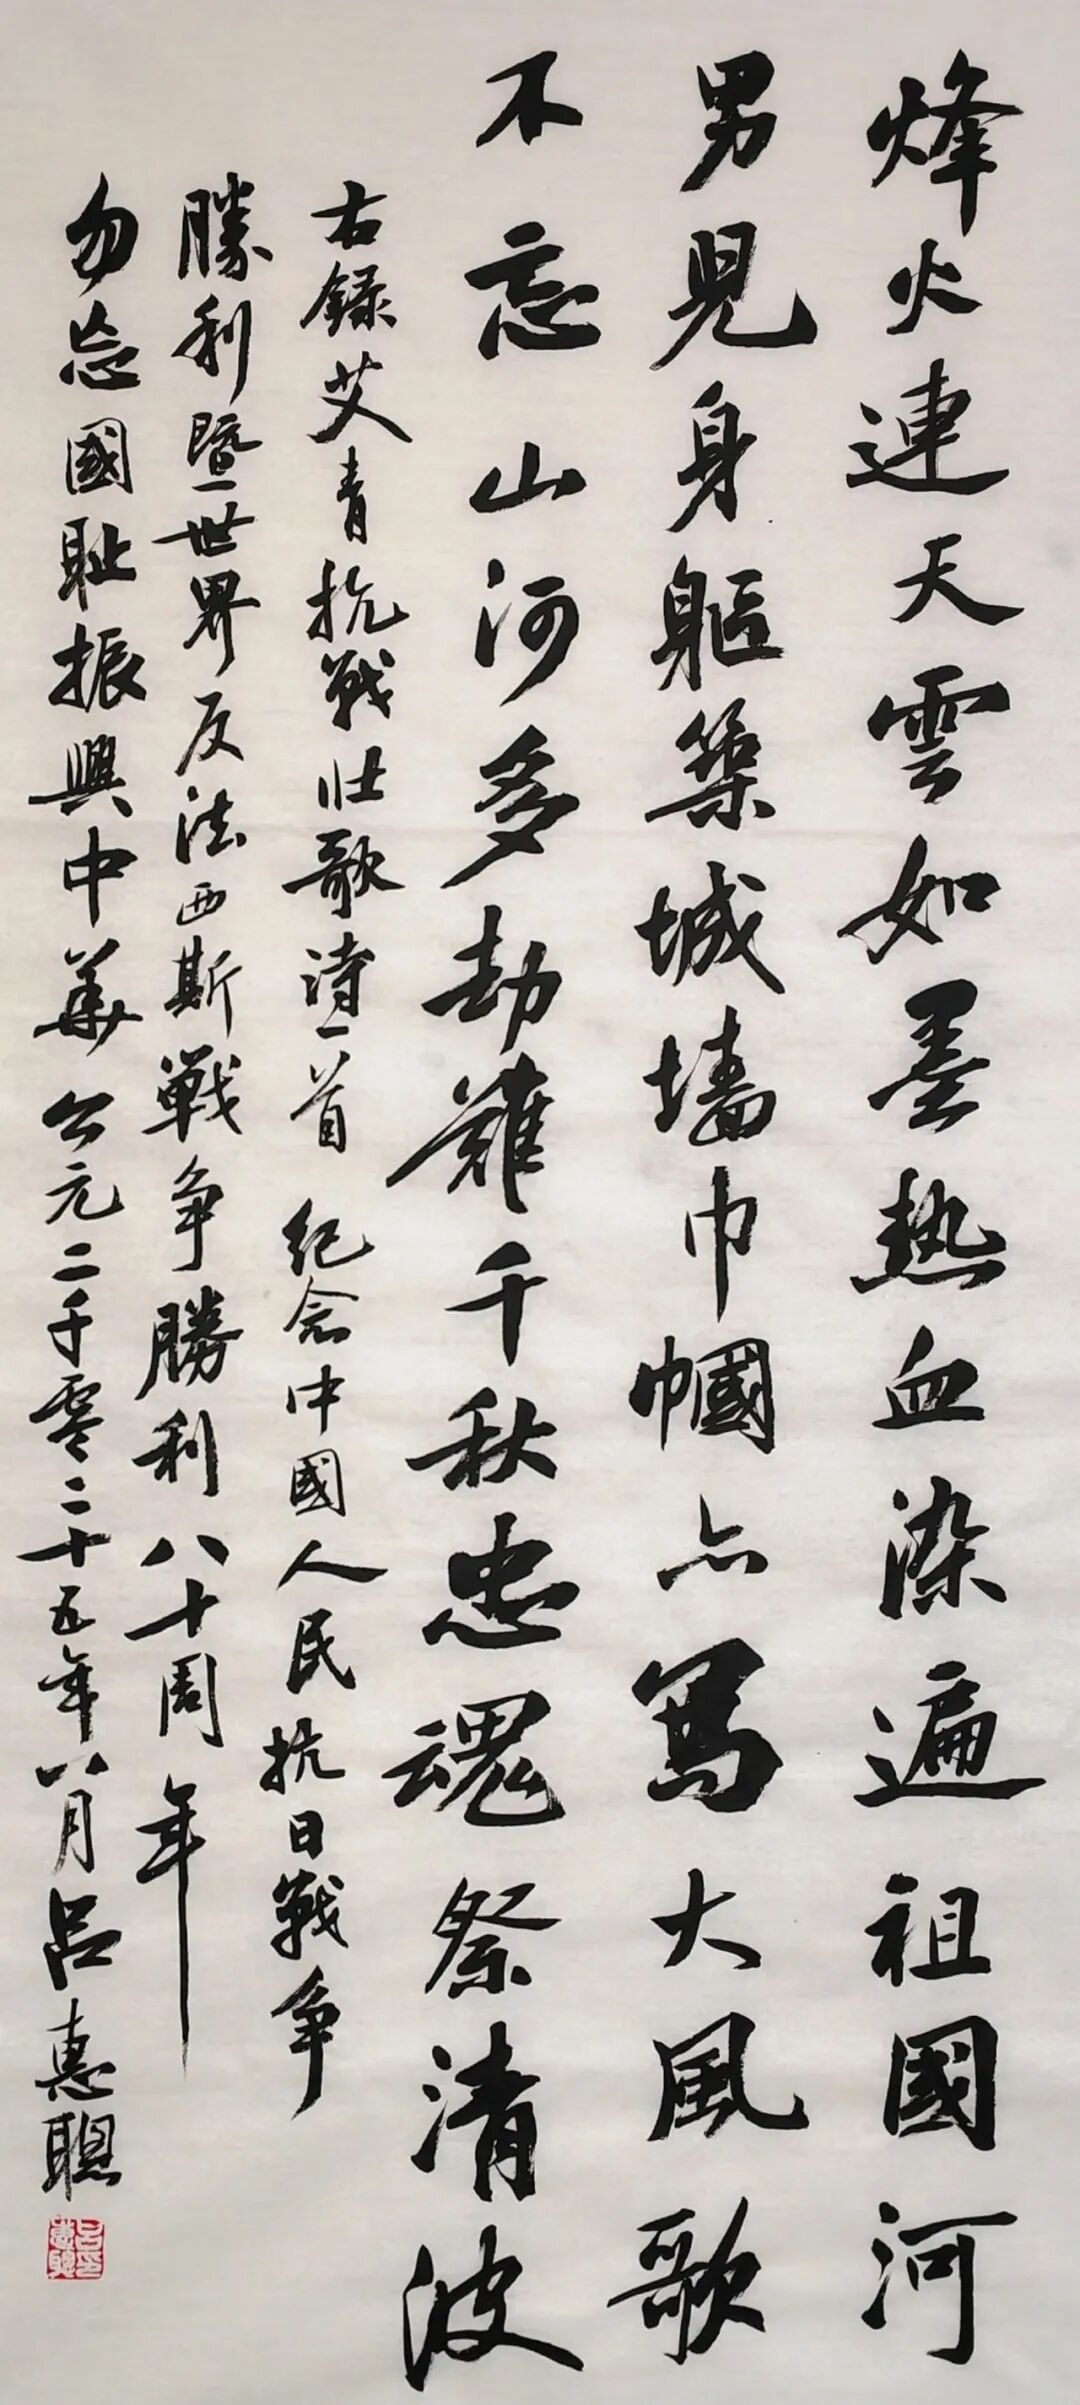 烽火連天雲如墨熱血染遍祖國河
男兒身軀築城墻巾幗亦寫大風歌
不忘山河多劫難千秋忠魂祭清波
右録艾青抗戰壯歌詩一首 纪念中國人民抗日戰争
勝利暨世界反法西斯戰争勝利八十周年
勿忘國耻振興中華 公元二千零二十五年八月吕惠聰